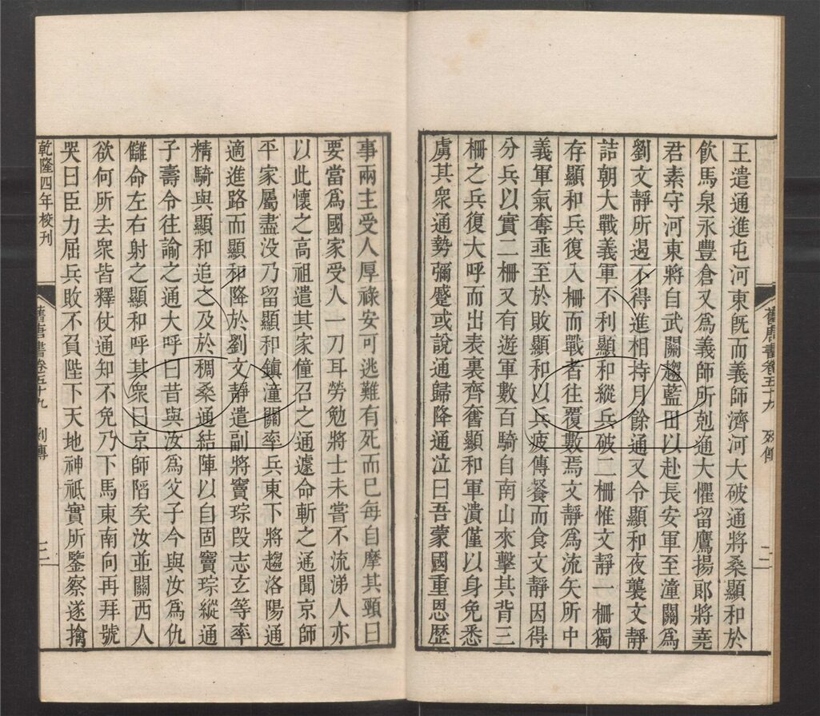 王遣通進屯河東旣而義師濟河大破通將桑顯和於
飮馬泉永豐倉又爲義師所剋通大懼留鷹揚郞將堯
君素守河東將自武關趨藍田以赴長安軍至潼關爲
劉文靜所遏不得進相持月餘通又令顯和夜襲文靜
詰朝大戰義軍不利顯和縱兵破二柵惟文靜一柵獨
存顯和兵復入柵而戰者往覆數焉文靜爲流矢所中
義軍氣奪垂至於敗顯和以兵疲傳餐而食文靜因得
分兵以實二柵又有遊軍數百騎自南山來擊其背三
柵之兵復大呼而出表裏齊奮顯和軍潰僅以身免悉
虜其衆通勢彌蹙或說通歸降通泣曰吾蒙國重恩歷
舊唐書卷五十九 列傳
二
事兩主受人厚祿安可逃難有死而已每自摩其頸曰
要當爲國家受人一刀耳勞勉將士未嘗不流涕人亦
以此懷之高祖遣其家僮召之通遽命斬之通聞京師
平家屬盡沒乃留顯和鎮潼關率兵東下將趨洛陽通
適進路而顯和降於劉文靜遣副將竇琮段志玄等率
精騎與顯和追之及於稠桑通結陣以自固竇琮縱通
子壽令往諭之通大呼曰昔與汝爲父子今與汝爲仇
讎命左右射之顯和呼其衆曰京師陷矣汝並關西人
欲何所去衆皆釋仗通知不免乃下馬東南向再拜號
哭曰臣力屈兵敗不負陛下天地神祇實所鑒察遂擒
乾隆四年校刊
舊唐書卷五十九 列傳
三